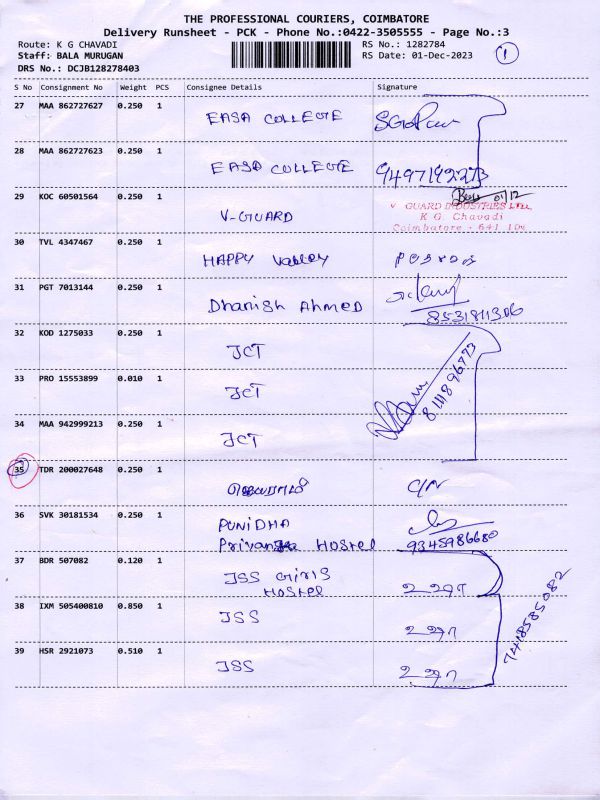 THE PROFESSIONAL COURIERS, COIMBATORE
Delivery Runsheet - PCK - Phone No.:0422-3505555 - Page No.:3
Route: K G CHAVADI RS No.: 1282784 1
Staff: BALA MURUGAN RS Date: 01-Dec-2023
DRS No.: DCJB128278403
S No Consignment No Weight PCS Consignee Details Signature
27 MAA 862727627 0.250 1
EASA COLLEGE
28 MAA 862727623 0.250 1
EASA COLLEGE 9497192273
29 KOC 60501564 0.250 1
01/12
V-GUARD V GUARD INDUSTRIES LTD.
K G. Chavadi
Coimbatore - 641
30 TVL 4347467 0.250 1
HAPPY Valley
31 PGT 7013144 0.250 1
Dhanish Ahmed
8531811306
32 KOD 1275033 0.250 1
JCT
33 PRO 15553899 0.010 1
JCT 8111896773
34 MAA 942999213 0.250 1
JCT
35 TDR 200027648 0.250 1
C/N
36 SVK 30181534 0.250 1
PUNIDHA
Priyanka HOSTEL 9345986680
37 BDR 507082 0.120 1
JSS GIRLS
HOSTEL
38 IXM 505400810 0.850 1
JSS 7418585082
39 HSR 2921073 0.510 1
JSS